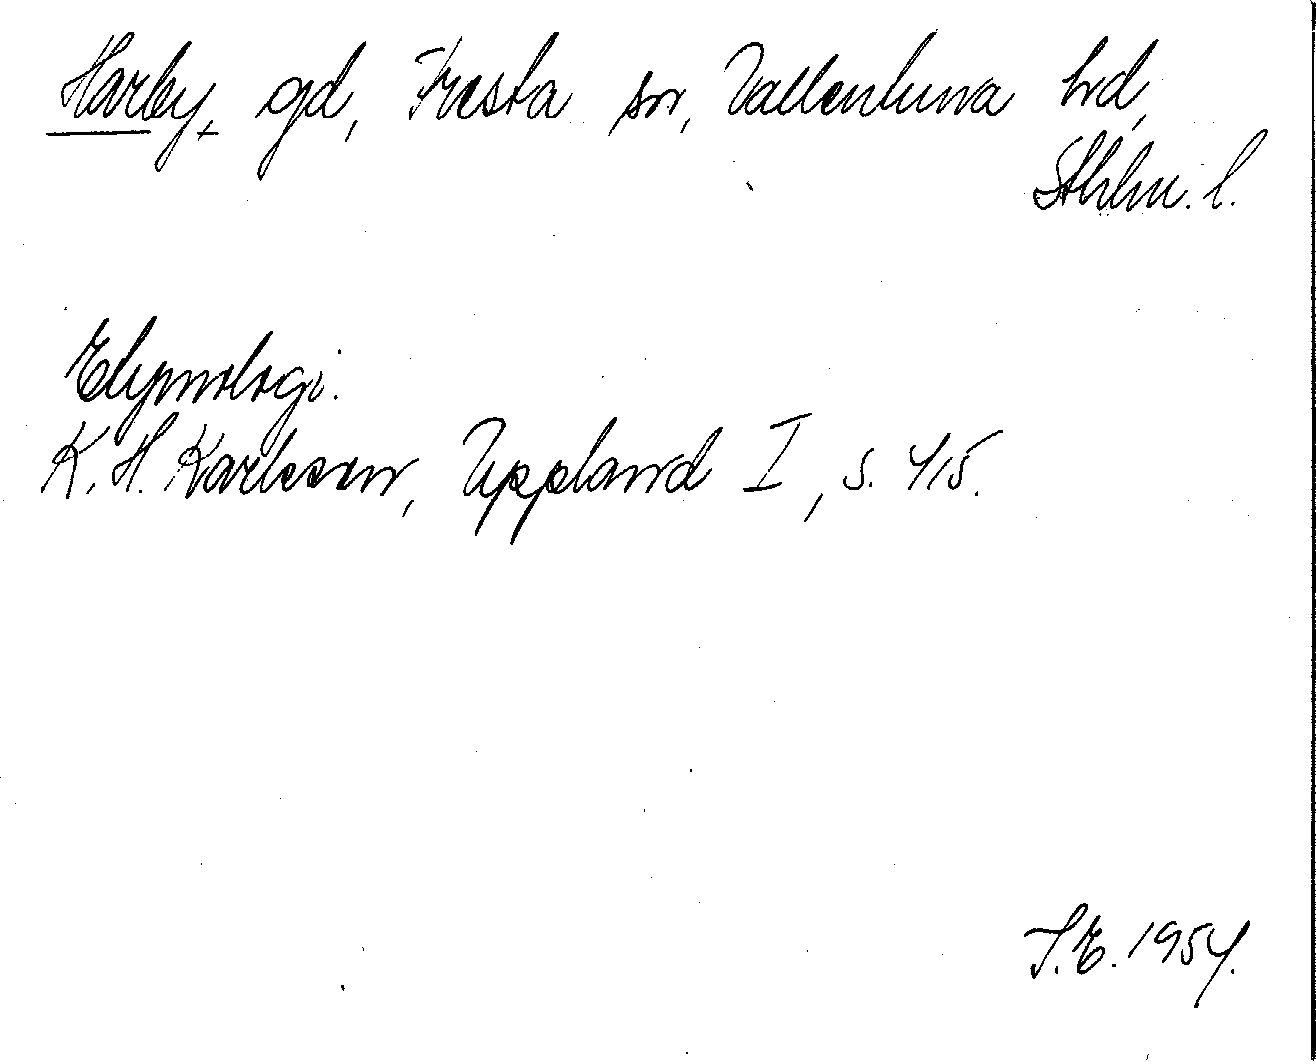 Harby, gd, Fresta sn, Vallentuna hd,
Sthlm. l.
Etymologi.
K. H. Karlsson, Uppland I, s. 415.
I.E. 1954.